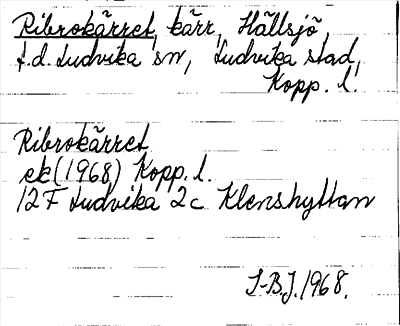 Ribrokärret, kärr, Hällsjö,
f.d. Ludvika sn, Ludvika stad,
Kopp. l.
Ribrokärret
ek (1968) Kopp. l.
12 F Ludvika 2c Klenshyttan
I-B.J. 1968.